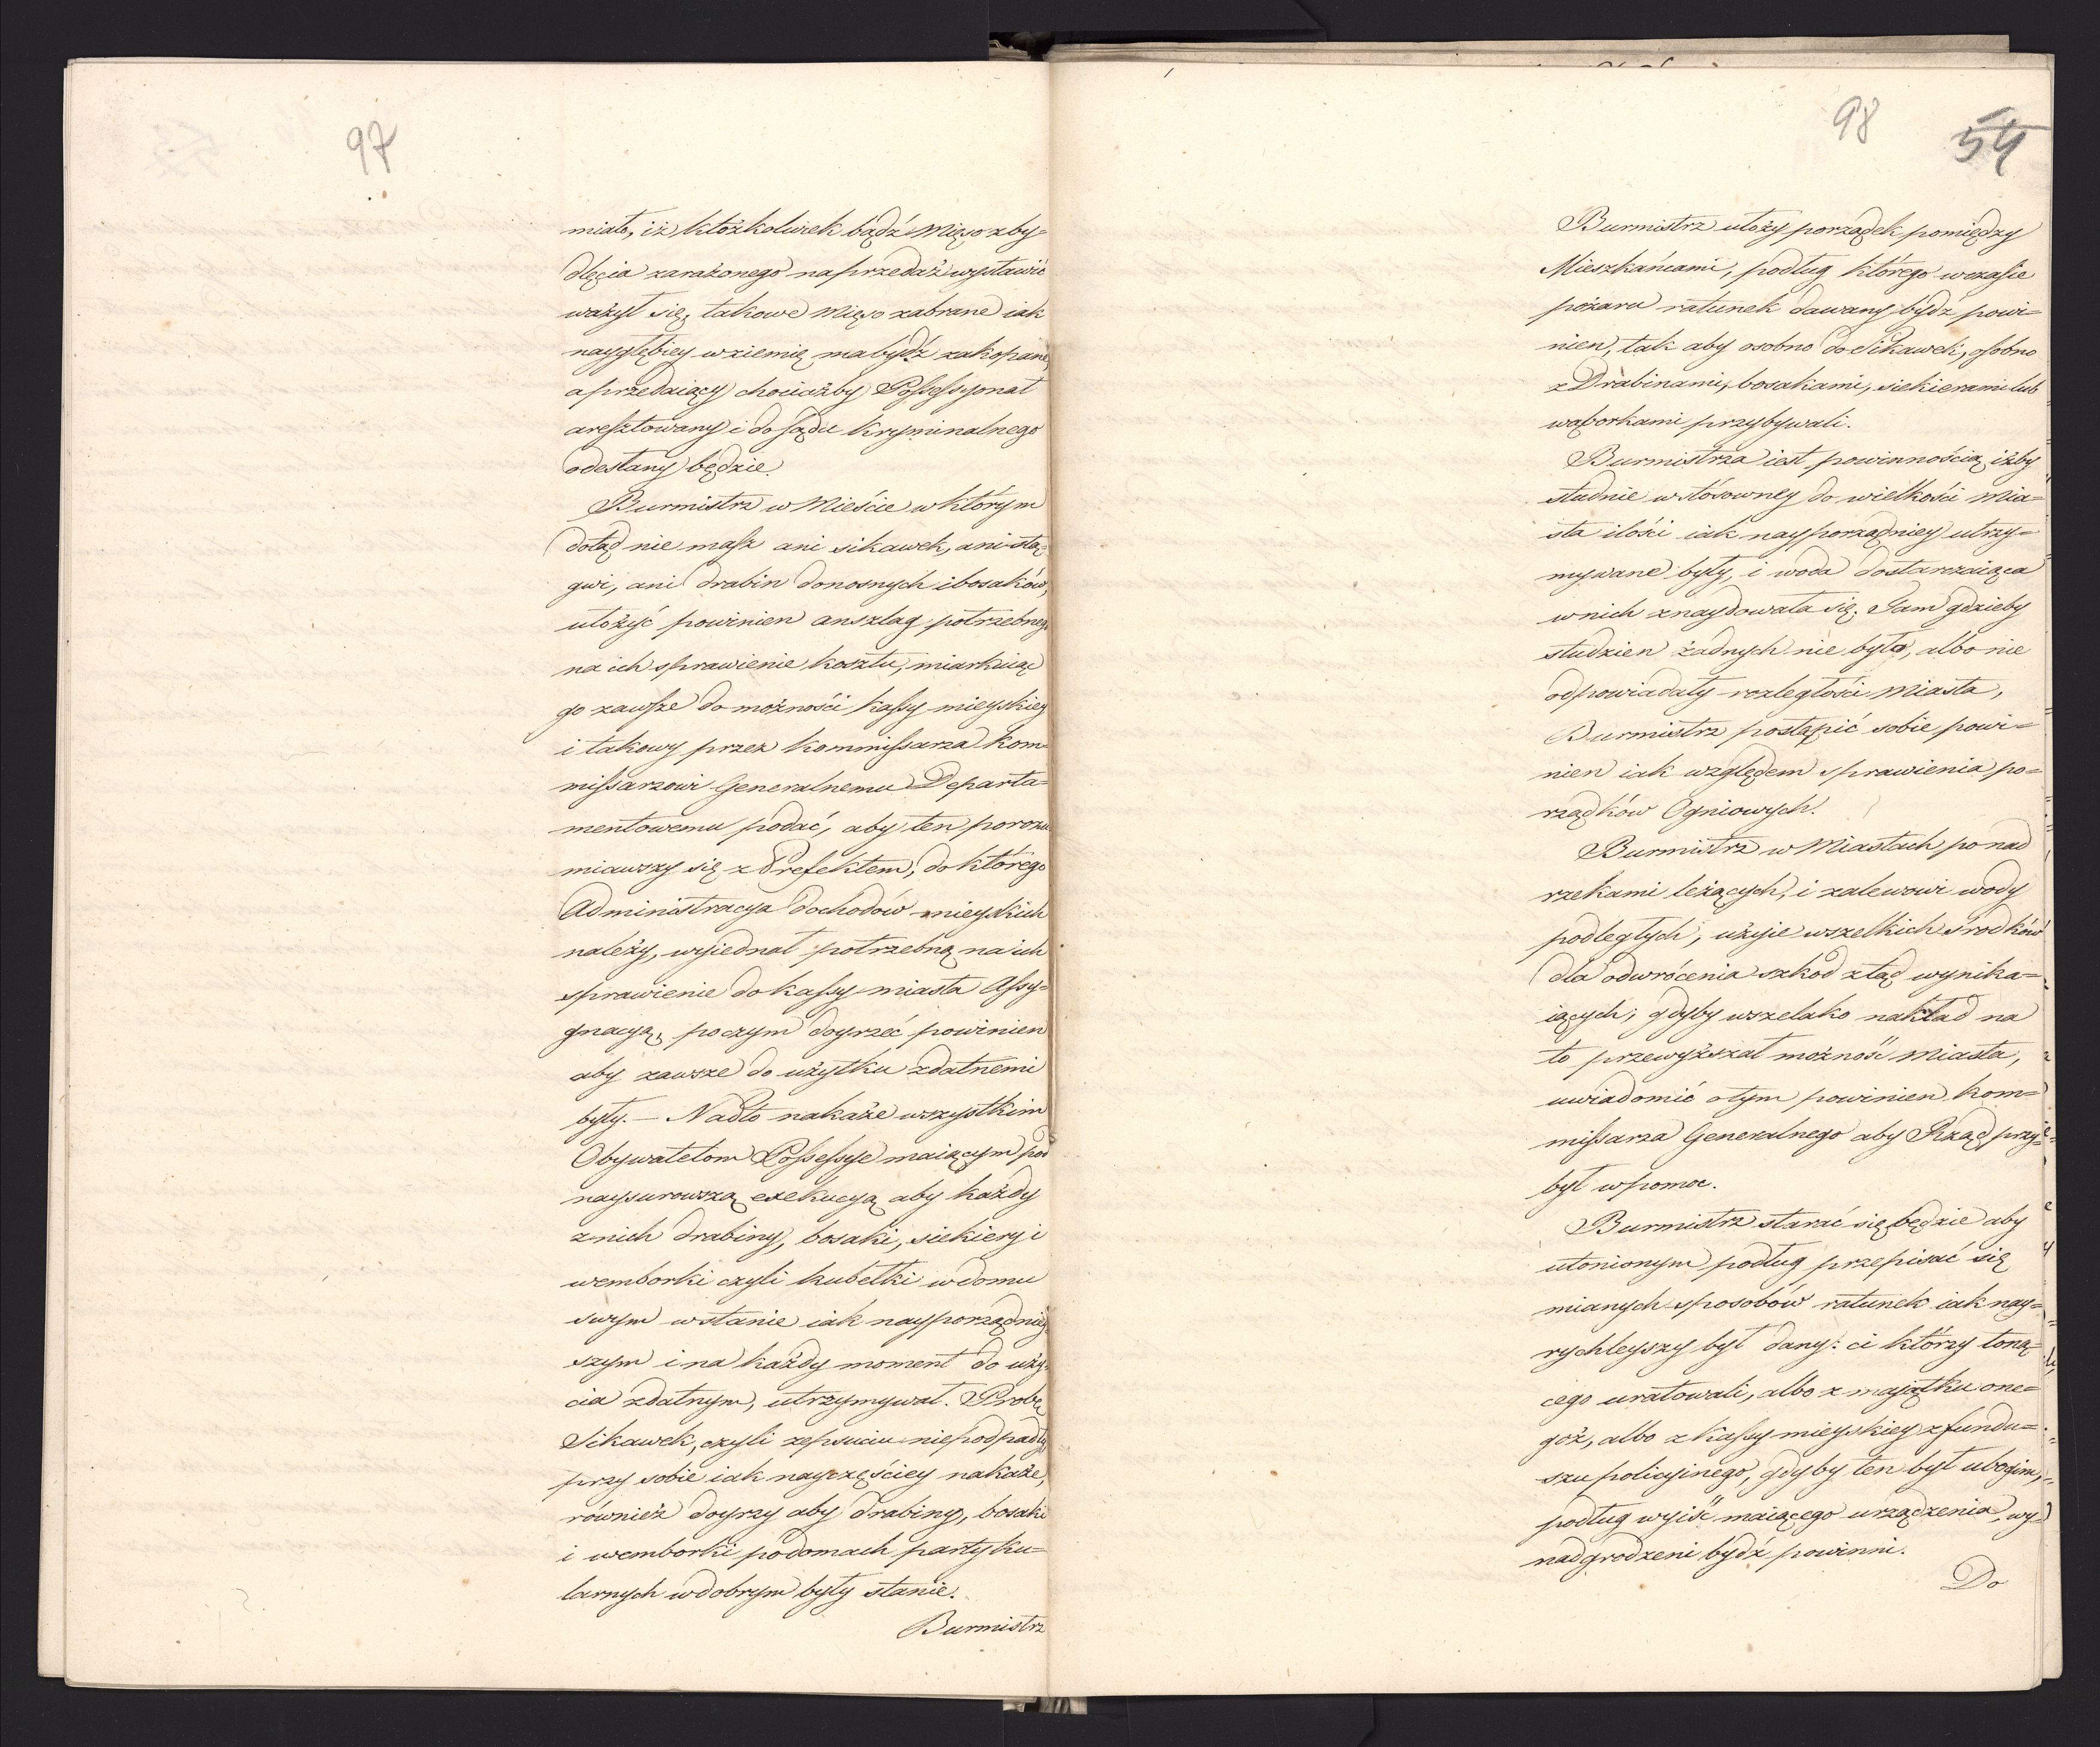 97
miało, iż ktożkolwiek bądź Mięso z by=
dlęcia zarażonego na przedaż wystawić
ważył się, takowe Mięso zabrane iak
naygłębiey w ziemię ma bydź zakopane,
a przedaiący chociażby Possessyonat
aresztowany i do sądu kryminalnego
odesłany będzie.
Burmistrz w Mieście w którym
dotąd nie masz ani sikawek, ani stą=
gwi, ani drabin donosnych i bosaków,
ułożyć powinien anszlag potrzebnego
na ich sprawienie kosztu, miarkuiąc
go zawsze do możności kassy mieyskiey
i takowy przez kommissarza kom=
missarzowi Generalnemu Departa=
mentowemu podać, aby ten porozu
miawszy się z Prefektem, do którego
Administracya dochodów mieyskich
należy, wyiednał potrzebną na ich
sprawienie do kassy miasta Assy=
gnacyą, poczym doyrzeć powinien
aby zawsze do użytku zdatnemi
były. — Nadto nakaże wszystkim
Obywatelom Possessye maiącym pod
naysurowszą exekucyą aby każdy
z nich drabiny, bosaki, siekiery i
wemborki czyli kubełki w domu
swym w stanie iak nayporządniey=
szym i na każdy moment do uży=
cia zdatnym, utrzymywał. Probę
Sikawek, czyli zepsuciu nie podpadły
przy sobie iak nayczęściey nakaże,
również doyrzy aby drabiny, bosaki
i wemborki po domach partyku=
larnych w dobrym były stanie.
Burmistrz
98
54
Burmistrz ułoży porządek pomiędzy
Mieszkańcami, podług którego w czasie
pożaru ratunek dawany bydź powi=
nien, tak aby osobno do Sikawek, osobno
z Drabinami, bosakami, siekierami lub
wąborkami przybywali.
Burmistrza iest powinnością, iżby
studnie w stósowney do wielkości Mia=
sta ilości iak nayporządniey utrzy=
mywane były, i woda dostarczaiąca
w nich znaydowała się. Tam gdzieby
studzien żadnych nie było, albo nie
odpowiadały rozległości Miasta,
Burmistrz postąpić sobie powi=
nien iak względem sprawienia po=
rządków Ogniowych.
Burmistrz w Miastach ponad
rzekami leżących, i zalewowi wody
podległych, użyie wszelkich środków
dla odwrócenia szkod ztąd wynika=
iących; gdyby wszelako nakład na
to przewyższał możność Miasta,
uwiadomić o tym powinien Kom=
missarza Generalnego aby Rząd przy=
był w pomoc.
Burmistrz starać się będzie aby
utonionym podług przepisać się
mianych sposobów ratunek iak nay=
rychleyszy był dany: ci którzy toną=
cego uratowali, albo z majątku one=
goż, albo z kassy mieyskiey z fundu=
szu policyinego, gdyby ten był ubogim,
podług wyiść maiącego urządzenia, wy=
nadgrodzeni bydź powinni.
Do